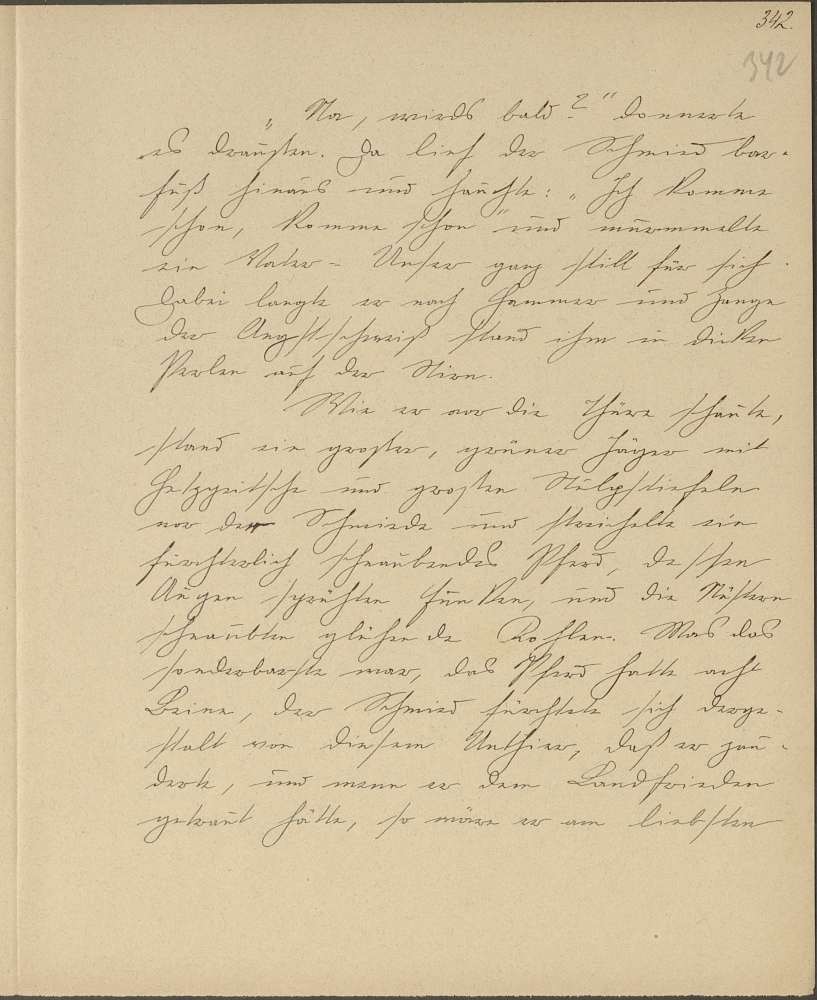 342.
342
„Na, wirds bald?“ donnerte
es draußen. Da lief der Schmied bar-
fuß hinaus und hauchte: „Ich komme
schon, komme schon“ und murmmelte
ein Vater-Unser ganz still für sich.
Dabei langte er nach Hammer und Zange
der Angstschweiß stand ihm in dicken
Perlen auf der Stirn.
Wie er vor die Thüre schaute,
stand ein großer, grüner Jäger mit
Hetzpeitsche und großen Stülpstiefeln
vor der Schmiede und streichelte ein
fürchterlich schnaubendes Pferd, dessen
Augen sprühten Funken, und die Nüstern
schnaubten glühende Kohlen. Was das
sonderbarste war, das Pferd hatte acht
Beine, der Schmied fürchtete sich derge-
stalt von diesem Unthier, daß er zau-
derte, und wenn er dem Landfrieden
getraut hätte, so wäre er am liebsten